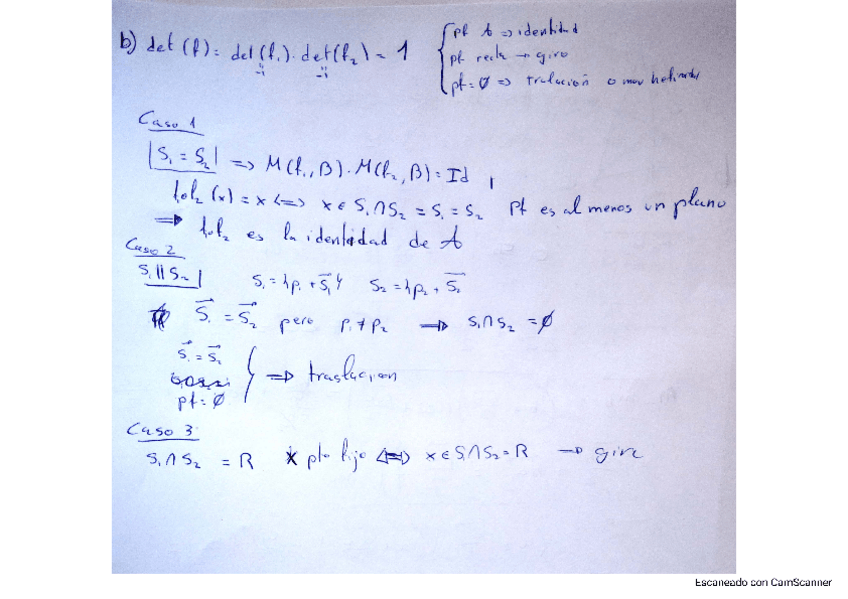 b) det (f) = det(f₁) · det(f₂) = 1
-1 -1
{ pf A ⇒ identidad
pf recta → giro
pf = ∅ ⇒ o mov helicoidal
Caso 1
|S₁ = S₂| ⇒ M(f₁, B) · M(f₂, B) = Id
f₁∘f₂ (x) = x ⇔ x ∈ S₁ ∩ S₂ = S₁ = S₂ Pf es al menos un plano
⇒ f₁∘f₂ es la identidad de A
Caso 2
S₁ || S₂ | S₁ = {p₁ + S₁} S₂ = {p₂ + S₂
S₁ = S₂ pero p₁ ≠ p₂ ⇒ S₁ ∩ S₂ = ∅
S₁ = S₂
pf = ∅ } ⇒ traslacion
Caso 3
S₁ ∩ S₂ = R x pto fijo ⇔ x ∈ S₁ ∩ S₂ = R → giro
Escaneado con CamScanner